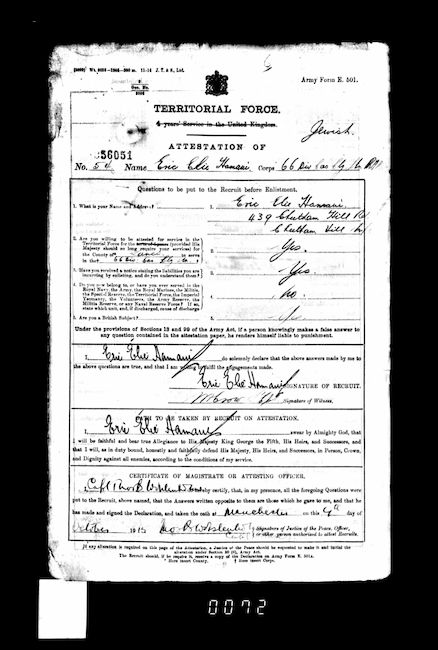 Army Form E. 501.
TERRITORIAL FORCE.
4 years' Service in the United Kingdom.
Jewish.
ATTESTATION OF
56051
No. 54 Name Eric Elie Hamani Corps 66 Div
Questions to be put to the Recruit before Enlistment.
1. What is your Name and Address? 1. Eric Elie Hamani
439 Cheetham Hill Rd
Cheetham Hill
2. Are you willing to be attested for service in the
Territorial Force for the (provided His
Majesty should so long require your services) for
the County of to serve
in the 2. Yes.
3. Have you received a notice stating the liabilities you are
incurring by enlisting, and do you understand them? 3. Yes.
4. Do you now belong to, or have you ever served in the
Royal Navy, the Army, the Royal Marines, the Militia,
the Special Reserve, the Territorial Force, the Imperial
Yeomanry, the Volunteers, the Army Reserve, the
Militia Reserve, or any Naval Reserve Force? If so,
state which unit, and, if discharged, cause of discharge 4. no.
5. Are you a British Subject? 5.
Under the provisions of Sections 13 and 99 of the Army Act, if a person knowingly makes a false answer to
any question contained in the attestation paper, he renders himself liable to punishment.
I, Eric Elie Hamani do solemnly declare that the above answers made by me to
the above questions are true, and that I am willing to fulfil the engagements made.
Eric Elie Hamani SIGNATURE OF RECRUIT.
Signature of Witness.
OATH TO BE TAKEN BY RECRUIT ON ATTESTATION.
I, Eric Elie Hamani swear by Almighty God, that
I will be faithful and bear true Allegiance to His Majesty King George the Fifth, His Heirs, and Successors, and
that I will, as in duty bound, honestly and faithfully defend His Majesty, His Heirs, and Successors, in Person, Crown,
and Dignity against all enemies, according to the conditions of my service.
CERTIFICATE OF MAGISTRATE OR ATTESTING OFFICER.
I, Capt do hereby certify, that, in my presence, all the foregoing Questions were
put to the Recruit, above named, that the Answers written opposite to them are those which he gave to me, and that he
has made and signed the Declaration, and taken the oath at Manchester on this day
October 1915 Signature of Justice of the Peace, Officer,
or other person authorized to attest Recruits.
If any alteration is required on this page of the Attestation, a Justice of the Peace should be requested to make it and initial the
alteration under Section 80 (6), Army Act.
The Recruit should, if he require it, receive a copy of the Declaration on Army Form E. 501a.
* Here insert County. † Here insert Corps.
0072